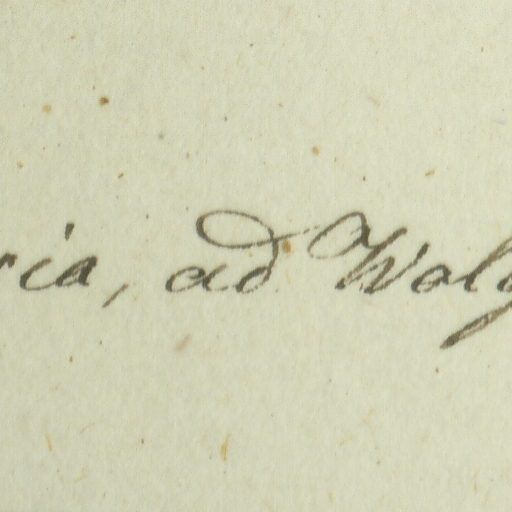 ria, ad Wolg